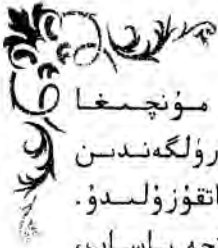 مۇنچىغا
رۇلگەندىن
اتقۇزۇلىدۇ.